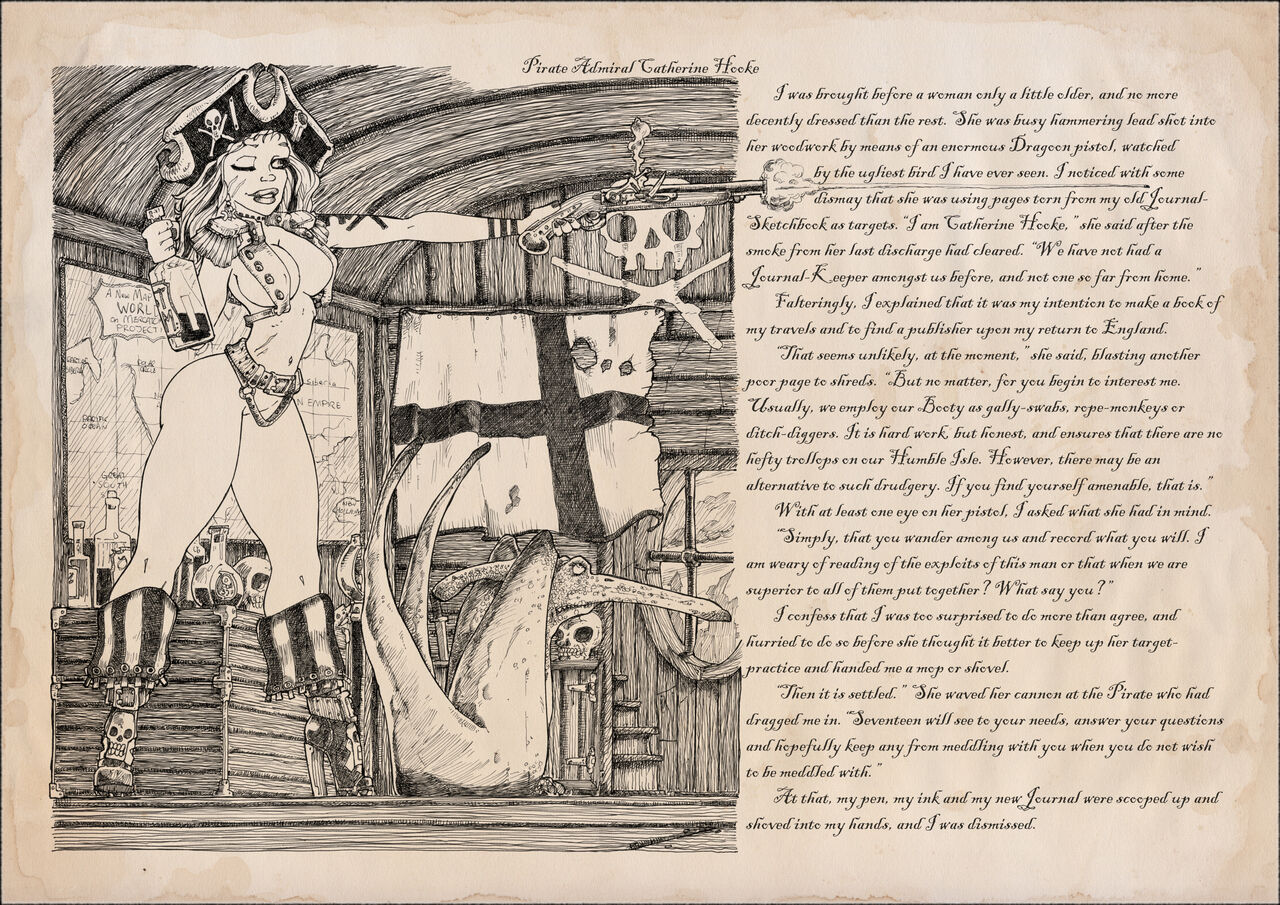 Pirate Admiral Catherine Hooke
I was brought before a woman only a little older, and no more
decently dressed than the rest. She was busy hammering lead shot into
her woodwork by means of an enormous Dragoon pistol, watched
by the ugliest bird I have ever seen. I noticed with some
dismay that she was using pages torn from my old Journal-
Sketchbook as targets. "I am Catherine Hooke," she said after the
smoke from her last discharge had cleared. "We have not had a
Journal-Keeper amongst us before, and not one so far from home."
Falteringly, I explained that it was my intention to make a book of
my travels and to find a publisher upon my return to England.
"That seems unlikely, at the moment," she said, blasting another
poor page to shreds. "But no matter, for you begin to interest me.
Usually, we employ our Booty as gally-swabs, rope-monkeys or
ditch-diggers. It is hard work, but honest, and ensures that there are no
hefty trollops on our Humble Isle. However, there may be an
alternative to such drudgery. If you find yourself amenable, that is."
With at least one eye on her pistol, I asked what she had in mind.
"Simply, that you wander among us and record what you will. I
am weary of reading of the exploits of this man or that when we are
superior to all of them put together? What say you?"
I confess that I was too surprised to do more than agree, and
hurried to do so before she thought it better to keep up her target-
practice and handed me a mop or shovel.
"Then it is settled." She waved her cannon at the Pirate who had
dragged me in. "Seventeen will see to your needs, answer your questions
and hopefully keep any from meddling with you when you do not wish
to be meddled with."
At that, my pen, my ink and my new Journal were scooped up and
shoved into my hands, and I was dismissed.
A New Map
WORL
on MERCAT
PROJECTI
PACIFIC
OCEAN
GREAT
SOUTH
Siberia
N EMPIRE
NEW